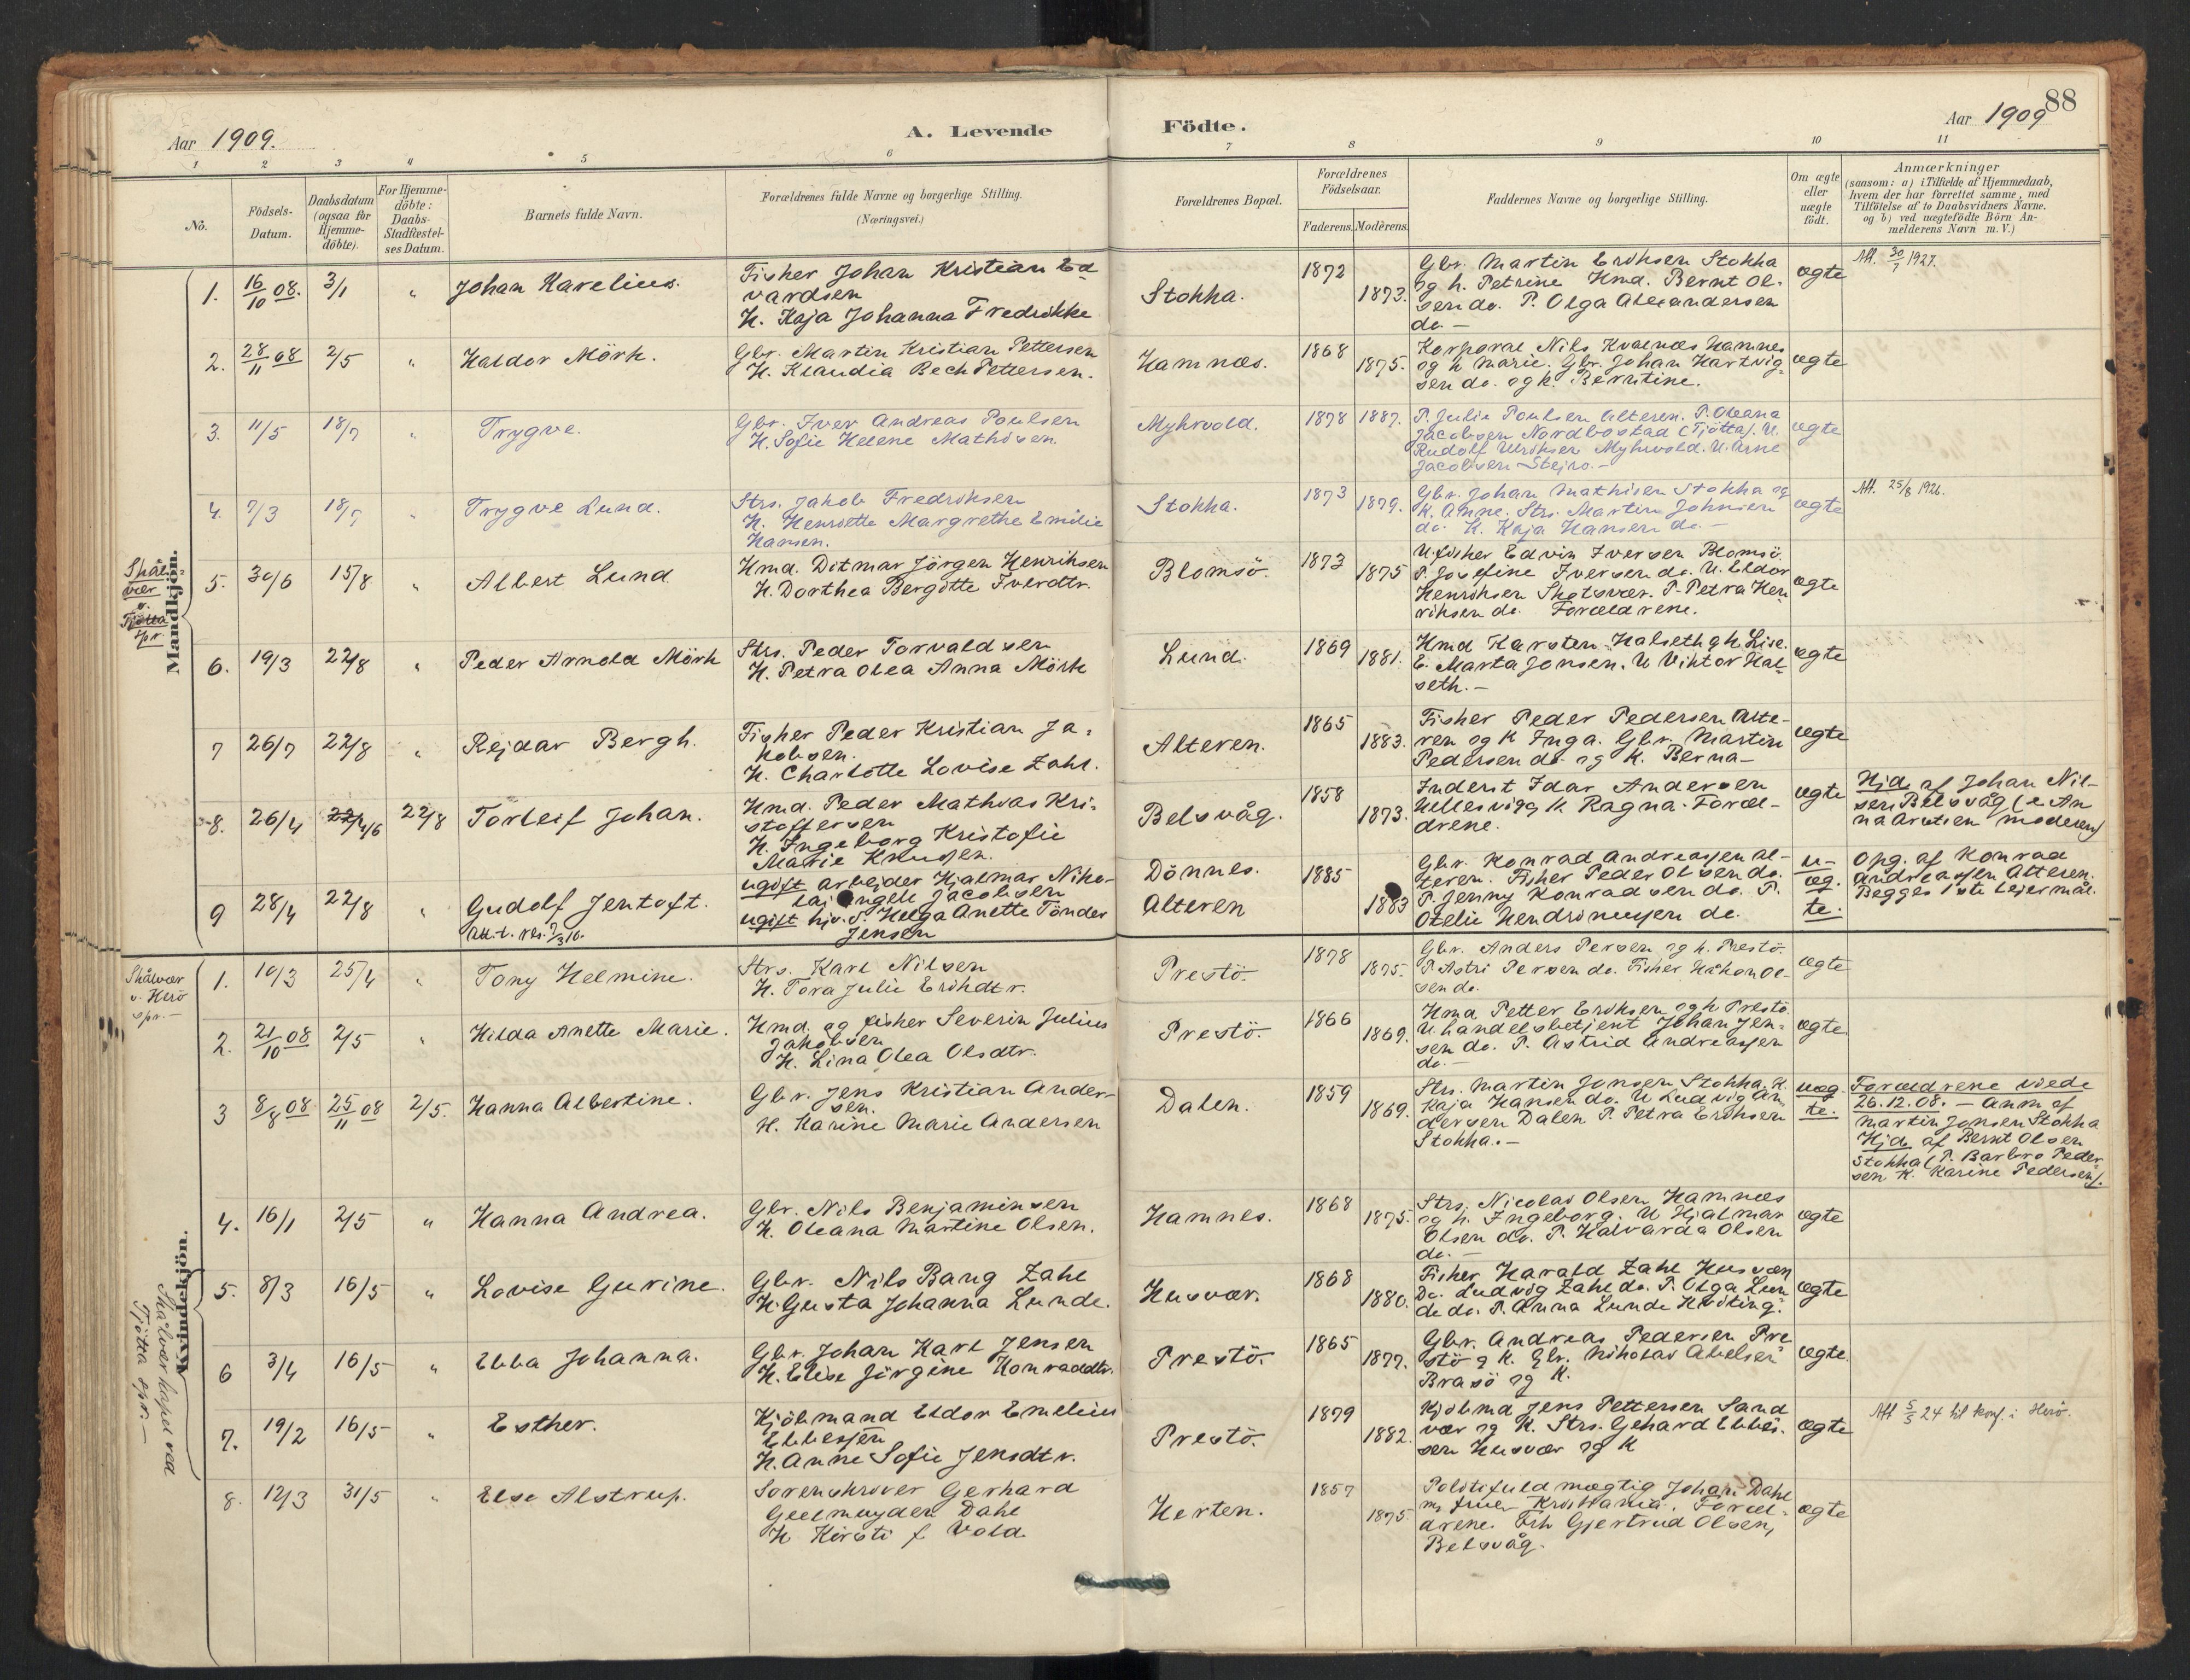 88
Aar 1909.
A. Levende
Födte.
Aar 1909
1 2 3 4 5 6 7 8 9 10 11
No.
Födsels-Datum.
Daabsdatum (ogsaa for Hjemme-döbte).
For Hjemme-döbte: Daabs-Stadfæstel-ses Datum.
Barnets fulde Navn.
Forældrenes fulde Navne og borgerlige Stilling.
(Næringsvei.)
Forældrenes Bopæl.
Forældrenes Födselsaar.
Faderens. Moderens.
Faddernes Navne og borgerlige Stilling.
Om ægte eller uægte födt.
Anmærkninger
(saasom: a) i Tilfælde af Hjemmedaab,
hvem der har forrettet samme, med
Tilföielse af to Daabsvidners Navne,
og b) ved uægtefödte Börn An-
melderens Navn m. V.)
Mandkjön.
1. 16/10 08. 3/1 " Johan Karelius.
Fisker Johan Kristian Ed
vardsen
H. Kaja Johanna Fredrikke
Stokka. 1872 1873.
Gbr. Martin Eriksen Stokka
og h. Petrine Hmd. Bernt Ol-
sen do. P. Olga Alexandersen
do. —
ægte
Att. 30/7 1927.
2. 28/11 08 2/5 " Haldor Mörk.
Gbr. Martin Kristian Pettersen
H. Klaudia Bech Pettersen.
Hamnæs. 1868 1875.
Korporal Nils Kvalnæs Hamnes
og h Marie. Gbr. Johan Hartvig-
sen do. og k. Berntine.
ægte
3. 11/5 18/7 " Trygve.
Gbr. Iver Andreas Poulsen
H. Sofie Helene Mathisen.
Myhrvold. 1878 1887.
P. Julie Poulsen Alteren. P. Oleana
Jacobsen Nordbostad (Tjötta). U.
Rudolf Ulriksen Myhrvold. U. Arne
Jacobsen Stejro. —
ægte
4. 7/3 18/7 " Trygve Lund.
Strs. Jakob Fredriksen
H. Henriette Margrethe Emilie
Hansen.
Stokka. 1873 1879.
Gbr. Johan Mathisen Stokka og
K. Anne. Strs. Martin Johnsen
do. K. Kaja Hansen do. —
ægte
Att. 25/8 1926.
5. 30/6 15/8 " Albert Lund
Hmd. Ditmar Jörgen Henriksen
H. Dorthea Bergitte Iverdtr.
Blomsö. 1873 1875
U. fisker Edvin Iversen Blomsö
P. Josefine Iversen do. U. Eldor
Henriksen Skotsvær. P. Petra Hen
riksen do. Forældrene.
ægte
6. 19/3 22/8 " Peder Arnold Mörk
Strs. Peder Torvaldsen
H. Petra Olea Anna Mörk
Lund. 1869 1881.
Hmd Karsten Halseth g h. Lise.
E. Marta Jonsen. U Viktor Hal-
seth. —
ægte
7 26/7 22/8 " Rejdar Bergh.
Fisker Peder Kristian Ja-
kobsen.
H. Charlotte Lovise Zahl.
Alteren. 1865 1883.
Fisker Peder Pedersen Alte-
ren og K Inga. Gbr. Martin
Pedersen do. og K. Berna —
ægte
8. 26/4 22/8 Torleif Johan.
Hmd. Peder Mathias Kri-
stoffersen
H. Ingeborg Kristofie
Marie Knudsen.
Belsvåg. 1858 1873.
Inderst Idar Andersen
K Ragna. Foræl-
drene.
ægte
Hjd. af Johan Nil-
sen Belsvåg
na moderen)
9 28/4 22/8 " Gudolf Jentoft.
ugift arbejder Hjalmar Niko-
laj Engell Jacobsen
ugift Helga Anette Tönder
Jensen
Dönnes. Alteren 1885 1883
Gbr. Konrad Andreassen Al-
teren. Fisker Peder Olsen do.
P. Jenny Konradsen do. P.
Otelie do.
u-
æg-
te.
Opg. af Konrad
Andreassen Alteren.
Begges 1ste lejermål.
Kvindekjön.
Skålvær
v. Herö
spr. —
1. 10/3 25/4 " Tony Helmine.
Strs. Karl Nilsen
H. Tora Julie Erikdtr.
Prestö. 1878 1875.
Gbr. Anders Persen og h. Prestö.
P. Astri Persen do. Fisker Håkon Ol-
sen do.
ægte
2. 21/10 08 2/5 " Hilda Anette Marie.
Hmd. og fisker Severin Julius
Jakobsen
H. Lina Olea Olsdtr.
Prestö. 1866 1869.
Hmd Petter Eriksen og h Prestö.
U handelsbetjent Johan Jen-
sen do. P. Astrid Andreassen
do. —
ægte
3 8/8 08 25/11 08 2/5. Hanna Albertine.
Gbr. Jens Kristian Ander-
sen.
H. Karine Marie Andersen
Dalen. 1859 1869.
Strs. Martin Jonsen Stokka. K.
Kaja Hansen do. U Ludvig An
dersen Dalen P. Petra Eriksen
Stokka. —
uæg-
te.
Forældrene viede
26.12.08. — Anm af
Martin Jonsen Stokka
Hjd. af Bernt Olsen
Stokka (P. Barbro Peder
sen K. Karine Pedersen).
4. 16/1 2/5 " Hanna Andrea.
Gbr. Nils Benjaminsen
H. Oleana Martine Olsen.
Hamnes. 1868 1875.
Strs. Nicolai Olsen Hamnæs
og h. Ingeborg. U Hjalmar
Olsen do. P. Halvarda Olsen
do. —
ægte
Skålvær kapel ved
Tjötta spr. —
5. 8/3 16/5 " Lovise Gurine.
Gbr. Nils Bang Zahl
H. Gusta Johanna Lunde.
Husvær. 1868 1880.
Fisker Harald Zahl Husvær
Do. Ludvig Zahl do. P. Olga Lun
de do. P. Anna Lunde Hviting.
ægte
6 3/4 16/5 " Ebba Johanna.
Gbr. Johan Karl Jensen
H. Elise Jörgine Konraddtr.
Prestö. 1865 1877.
Gbr. Andreas Pedersen Pre
stö g K. Gbr. Nikolai Abelsen
Brasö og K.
ægte.
7. 19/2 16/5 " Esther.
Kjöbmand Eldor Emelius
Ebbesen
H. Anne Sofie Jensdtr.
Prestö. 1879 1882.
Kjöbmd Jens Pettersen Sand
vær og K. Strs. Gehard Ebbe-
sen Husvær og K
ægte
Att 5/5 24 til konf. i Herö.
8. 12/3 31/5 " Else Alstrup.
Sorenskriver Gerhard
Geelmuyden Dahl
H Kirsti f Vold
Herten. 1857 1875.
Politifuldmægtig Johan Dahl
m frue Kristiania. Foræl-
drene. Frk Gjertrud Olsen,
Belsvåg.
ægte